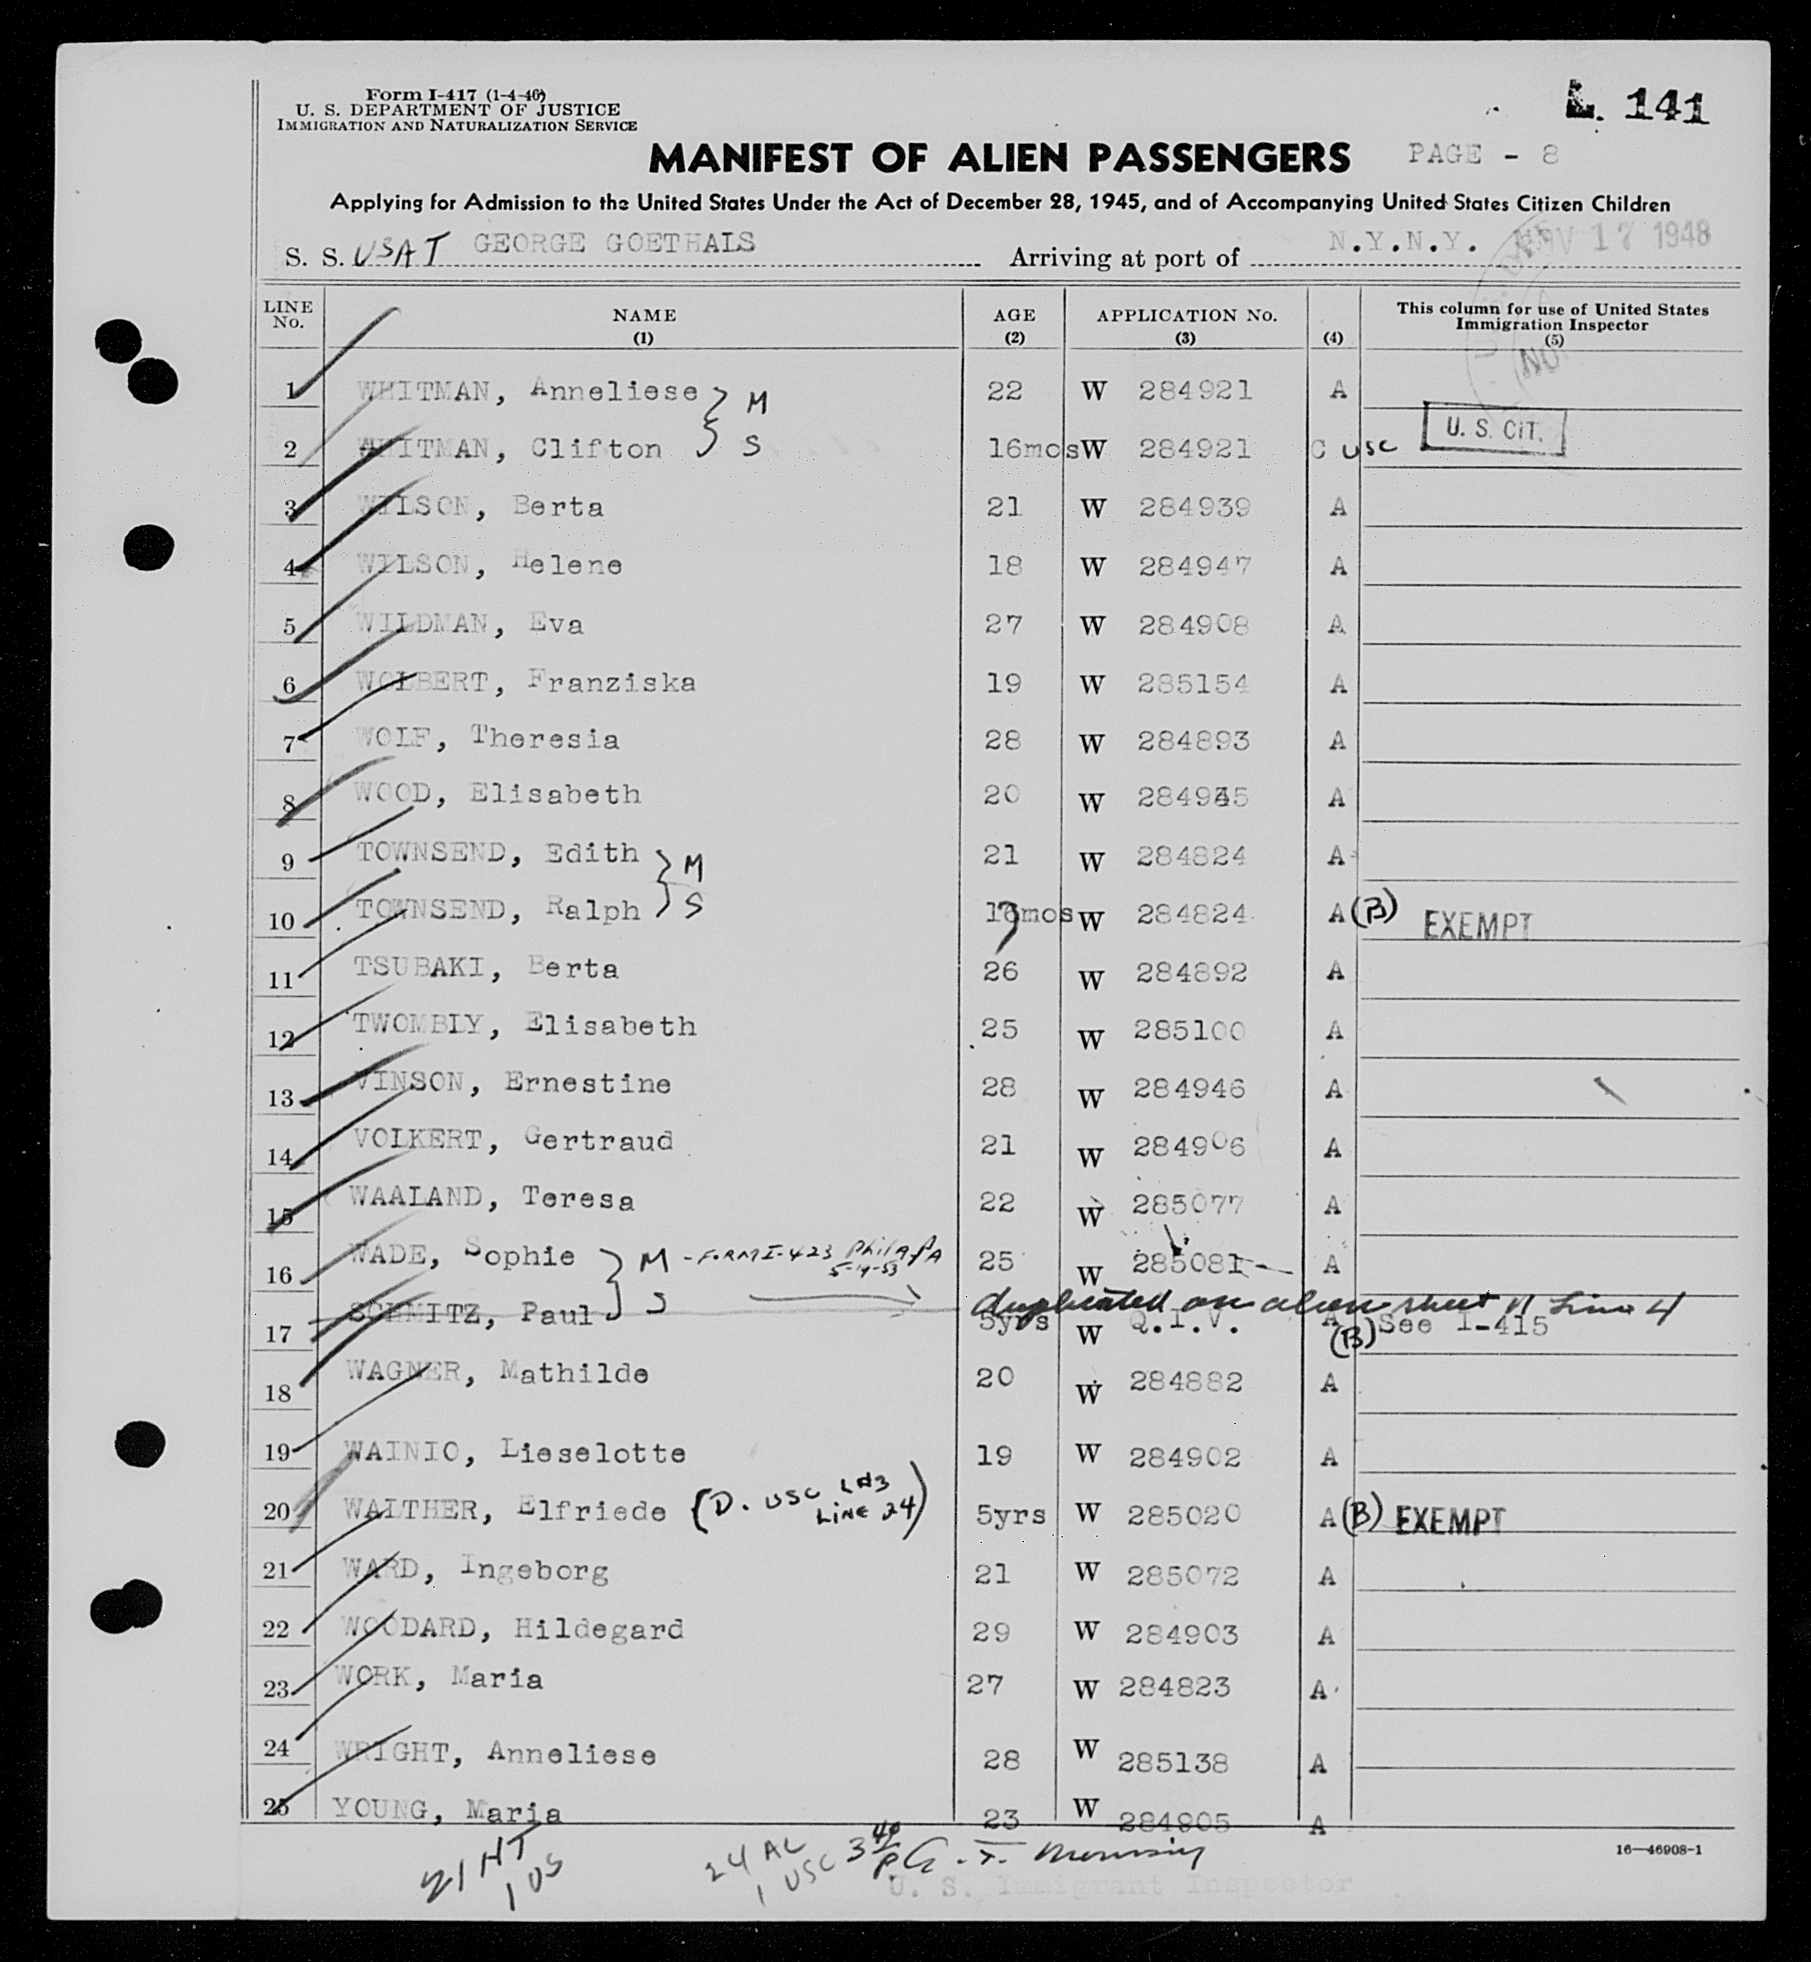 Form I-417 (1-4-46)
U. S. DEPARTMENT OF JUSTICE
IMMIGRATION AND NATURALIZATION SERVICE
L. 141
MANIFEST OF ALIEN PASSENGERS PAGE - 8
Applying for Admission to the United States Under the Act of December 28, 1945, and of Accompanying United States Citizen Children
S. S. USAT GEORGE GOETHALS Arriving at port of N.Y.N.Y. NOV 17 1948
LINE No. NAME (1) AGE (2) APPLICATION No. (3) (4) This column for use of United States Immigration Inspector (5)
1 WHITMAN, Anneliese M 22 W 284921 A
2 WHITMAN, Clifton S 16mos W 284921 C USC U. S. CIT.
3 WILSON, Berta 21 W 284939 A
4 WILSON, Helene 18 W 284947 A
5 WILDMAN, Eva 27 W 284908 A
6 WOLBERT, Franziska 19 W 285154 A
7 WOLF, Theresia 28 W 284893 A
8 WOOD, Elisabeth 20 W A
9 TOWNSEND, Edith M 21 W 284824 A
10 TOWNSEND, Ralph S W 284824 A (B) EXEMPT
11 TSUBAKI, Berta 26 W 284892 A
12 TWOMBLY, Elisabeth 25 W 285100 A
13 VINSON, Ernestine 28 W 284946 A
14 VOLKERT, Gertraud 21 W 284906 A
15 WAALAND, Teresa 22 W 285077 A
16 WADE, Sophie M - FORM I-423 Phila Pa 5-19-53 25 W 285081 A
duplicated on alien sheet 11 Line 4
17 SCHMITZ, Paul S 5yrs W Q.I.V. A (B) See I-415
18 WAGNER, Mathilde 20 W 284882 A
19 WAINIO, Lieselotte 19 W 284902 A
20 WALTHER, Elfriede (D. USC L#3 LINE 24) 5yrs W 285020 A (B) EXEMPT
21 WARD, Ingeborg 21 W 285072 A
22 WOODARD, Hildegard 29 W 284903 A
23 WORK, Maria 27 W 284823 A
24 WRIGHT, Anneliese 28 W 285138 A
25 YOUNG, Maria 23 W 284905 A
21 HT
1 US
24 AL
1 USC
16—46908-1
U. S. Immigrant Inspector